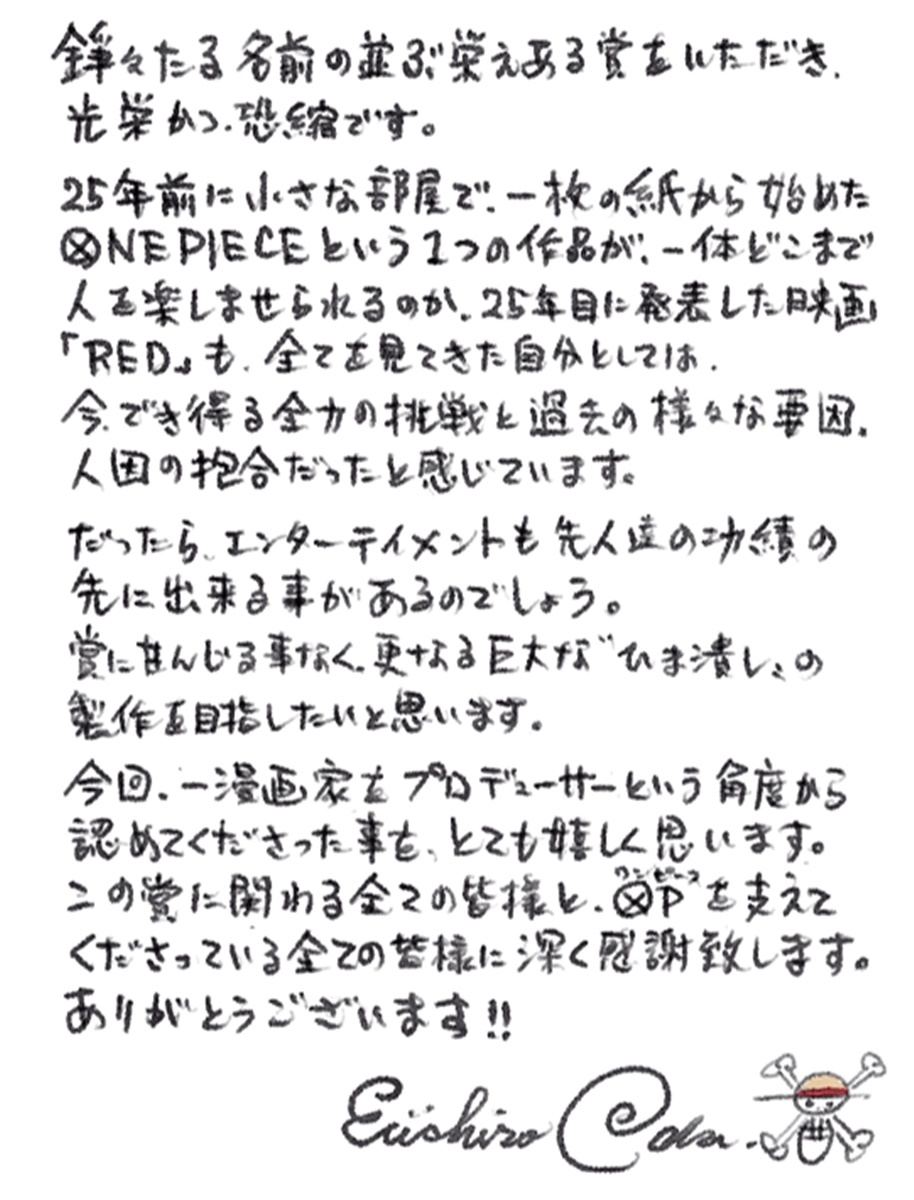 錚々たる名前の並ぶ栄えある賞をいただき、
光栄かつ、恐縮です。
25年前に小さな部屋で、一枚の紙から始めた
ONE PIECEという1つの作品が、一体どこまで
人を楽しませられるのか、25年目に発表した映画
「RED」も、全てを見てきた自分としては、
今、でき得る全力の挑戦と過去の様々な要因、
人因の抱合だったと感じています。
だったら、エンターテイメントも先人達の功績の
先に出来る事があるのでしょう。
賞に甘んじる事なく、更なる巨大な〝ひま潰し〟の
製作を目指したいと思います。
今回、一漫画家をプロデューサーという角度から
認めてくださった事を、とても嬉しく思います。
この賞に関わる全ての皆様と、OP(ワンピース)を支えて
くださっている全ての皆様に深く感謝致します。
ありがとうございます!!
Eiichiro Oda.